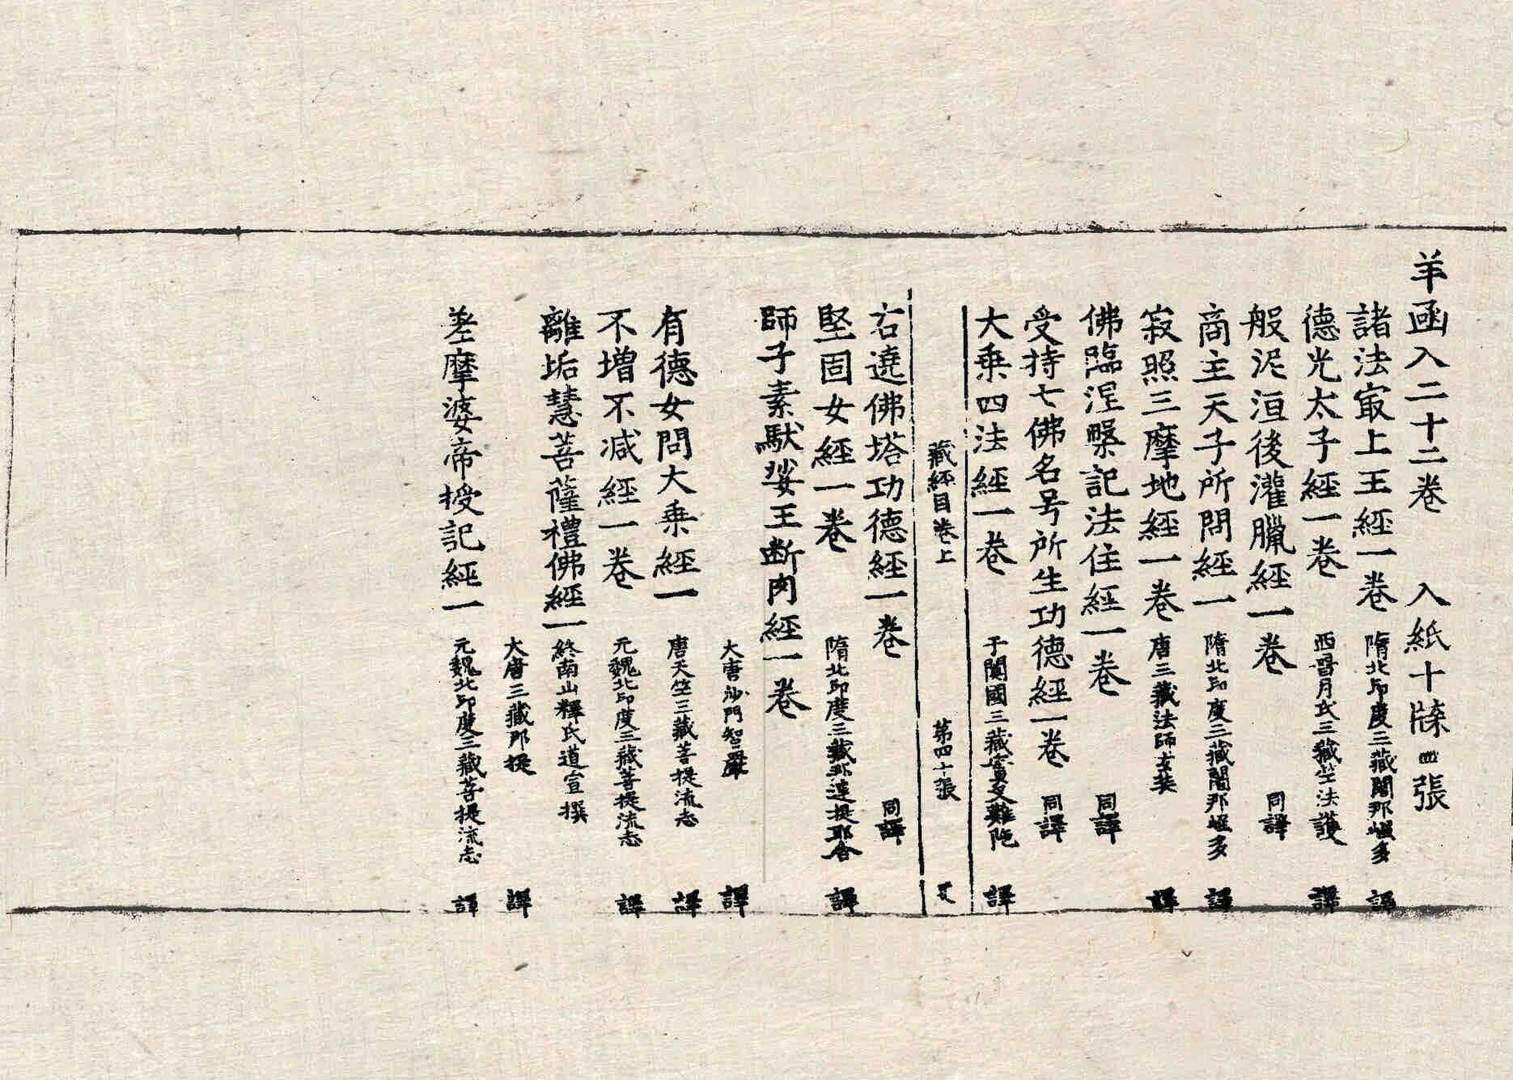 羊函入二十二卷 入紙十牒四張
諸法寂上王經一卷 隋北印度三藏闍那崛多 譯
德光太子經一卷 西晉月氏三藏竺法護 譯
般泥洹後灌臘經一卷 同譯
商主天子所問經一 隋北印度三藏闍那崛多 譯
寂照三摩地經一卷 唐三藏法師玄奘 譯
佛臨涅槃記法住經一卷 同譯
受持七佛名号所生功德經一卷 同譯
大乘四法經一卷 于闐國三藏實叉難陁 譯
藏經目卷上 第四十張
右遶佛塔功德經一卷 同譯
堅固女經一卷 隋北印度三藏那連提耶舍 譯
師子素馱娑王断肉經一卷
大唐沙門智嚴 譯
有德女問大乘經一 唐天竺三藏菩提流志 譯
不增不减經一卷 元魏北印度三藏菩提流志 譯
離垢慧菩薩禮佛經一 終南山釋氏道宣撰
大唐三藏那提 譯
差摩婆帝授記經一 元魏北印度三藏菩提流志 譯